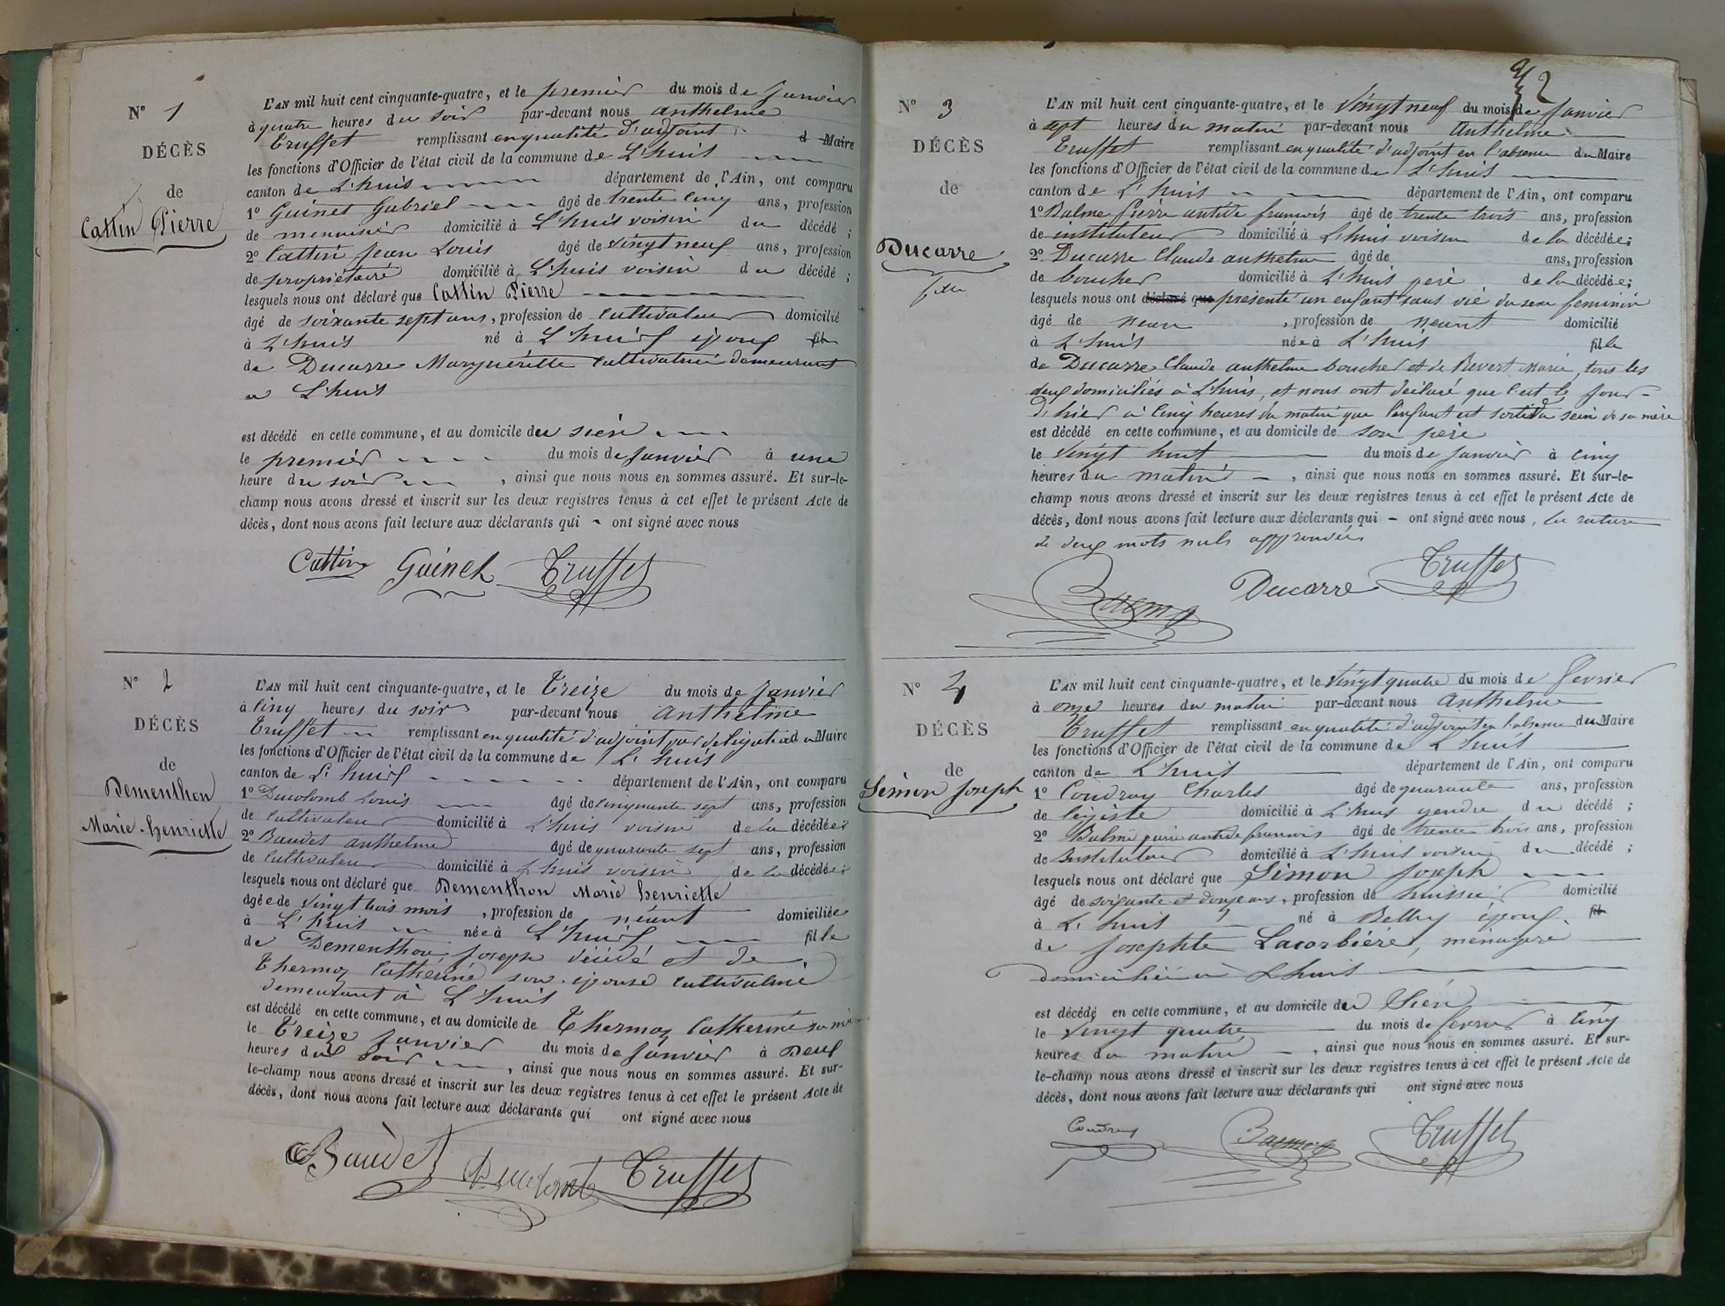 N° 1
DÉCÈS
de
Cattin Pierre
L'AN mil huit cent cinquante-quatre, et le premier du mois de Janvier
à quatre heures du soir par-devant nous anthelme
Truffet remplissant en qualité d'adjoint d Maire
les fonctions d'Officier de l'état civil de la commune de L'huis
canton de L'huis département de l'Ain, ont comparu
1° Guinet Gabriel âgé de trente cinq ans, profession
de menuisier domicilié à L'huis voisin du décédé ;
2° Cattin Jean Louis âgé de vingt neuf ans, profession
de propriétaire domicilié à L'huis voisin du décédé ;
lesquels nous ont déclaré que Cattin Pierre
âgé de soixante sept ans, profession de cultivateur domicilié
à L'huis né à L'huis époux fils
de Ducarre Margueritte cultivatrice demeurant
a L'huis
est décédé en cette commune, et au domicile du sien
le premier du mois de Janvier à une
heure du soir , ainsi que nous nous en sommes assuré. Et sur-le-
champ nous avons dressé et inscrit sur les deux registres tenus à cet effet le présent Acte de
décès, dont nous avons fait lecture aux déclarants qui ont signé avec nous
Cattin Guinet Truffet
N° 2
DÉCÈS
de
Dementhon
Marie-henriette
L'AN mil huit cent cinquante-quatre, et le Treize du mois de Janvier
à cinq heures du soir par-devant nous anthelme
Truffet remplissant en qualité d'adjoint par délégation d u Maire
les fonctions d'Officier de l'état civil de la commune de L'huis
canton de L'huis département de l'Ain, ont comparu
1° Ducolomb Louis âgé de cinquante sept ans, profession
de cultivateur domicilié à L'huis voisin de la décédée ;
2° Baudet anthelme âgé de quarante sept ans, profession
de cultivateur domicilié à L'huis voisin de la décédée ;
lesquels nous ont déclaré que Dementhon Marie henriette
âgée de vingt trois mois , profession de néant domiciliée
à L'huis née à L'huis fille
de Dementhon joseph décédé et de
Thermoz Catherine son épouse cultivatrice
demeurant à L'huis
est décédé en cette commune, et au domicile de Thermoz Catherine sa mère
le Treize Janvier du mois de Janvier à Deux
heures du soir , ainsi que nous nous en sommes assuré. Et sur-
le-champ nous avons dressé et inscrit sur les deux registres tenus à cet effet le présent Acte de
décès, dont nous avons fait lecture aux déclarants qui ont signé avec nous
Baudet Ducolomb Truffet
2
N° 3
DÉCÈS
de
Ducarre
L'AN mil huit cent cinquante-quatre, et le vingt neuf du mois de Janvier
à sept heures du matin par-devant nous Anthelme
Truffet remplissant en qualité d'adjoint en l'absence du Maire
les fonctions d'Officier de l'état civil de la commune de L'huis
canton de L'huis département de l'Ain, ont comparu
1° Balme Pierre antide francois âgé de trente trois ans, profession
de instituteur domicilié à L'huis voisin de la décédée ;
2° Ducarre Claude anthelme âgé de ans, profession
de boucher domicilié à L'huis père de la décédée ;
lesquels nous ont déclaré que présenté un enfant sans vie du sexe feminin
âgé de néant , profession de néant domicilié
à L'huis née à L'huis fille
de Ducarre Claude anthelme boucher et de Revert Marie, tous les
deux domiciliés à L'huis, et nous ont déclaré que c'est le jour
d'hier à cinq heures du matin que l'enfant est sorti du sein de sa mère
est décédé en cette commune, et au domicile de son père
le vingt huit du mois de Janvier à cinq
heures du matin , ainsi que nous nous en sommes assuré. Et sur-le-
champ nous avons dressé et inscrit sur les deux registres tenus à cet effet le présent Acte de
décès, dont nous avons fait lecture aux déclarants qui ont signé avec nous, la rature
de deux mots nuls approuvée
Ducarre Truffet
N° 4
DÉCÈS
de
Simon Joseph
L'AN mil huit cent cinquante-quatre, et le vingt quatre du mois de fevrier
à onze heures du matin par-devant nous Anthelme
Truffet remplissant en qualité d'adjoint en l'absence du Maire
les fonctions d'Officier de l'état civil de la commune de L'huis
canton de L'huis département de l'Ain, ont comparu
1° Coudray Charles âgé de quarante ans, profession
de légiste domicilié à L'huis gendre du décédé ;
2° Balme pierre antide francois âgé de trente trois ans, profession
de Instituteur domicilié à L'huis voisin du décédé ;
lesquels nous ont déclaré que Simon Joseph
âgé de soixante et douze ans, profession de huissier domicilié
à L'huis né à Belley époux fils
de Josephte Lacorbière, ménagère
domiciliée à L'huis
est décédé en cette commune, et au domicile du sien
le vingt quatre du mois de fevrier à cinq
heures du matin , ainsi que nous nous en sommes assuré. Et sur-
le-champ nous avons dressé et inscrit sur les deux registres tenus à cet effet le présent Acte de
décès, dont nous avons fait lecture aux déclarants qui ont signé avec nous
Coudray Truffet